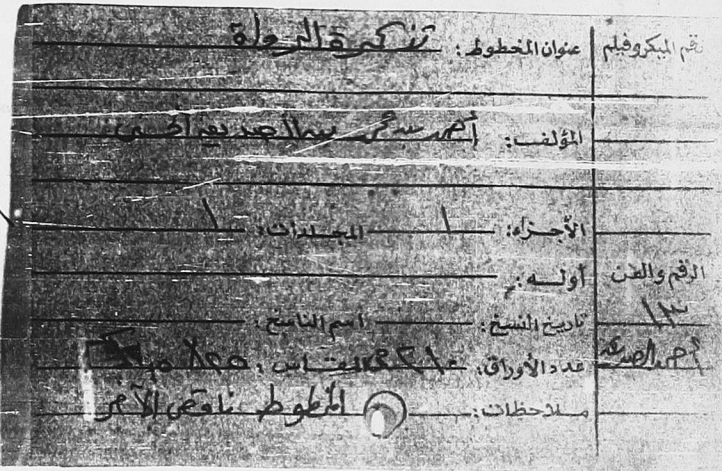 رقم الميكروفيلم
عنوان المخطوط: تذكرة الرواة
المؤلف: أحمد بن محمد بن الصديق
الأجزاء: ١ المجلدات: ١
الرقم والفن
أوله:
١٣
تاريخ النسخ: اسم الناسخ:
أحمد الصديق
عدد الأوراق: المقاس:
ملاحظات: المخطوط ناقص الآخر